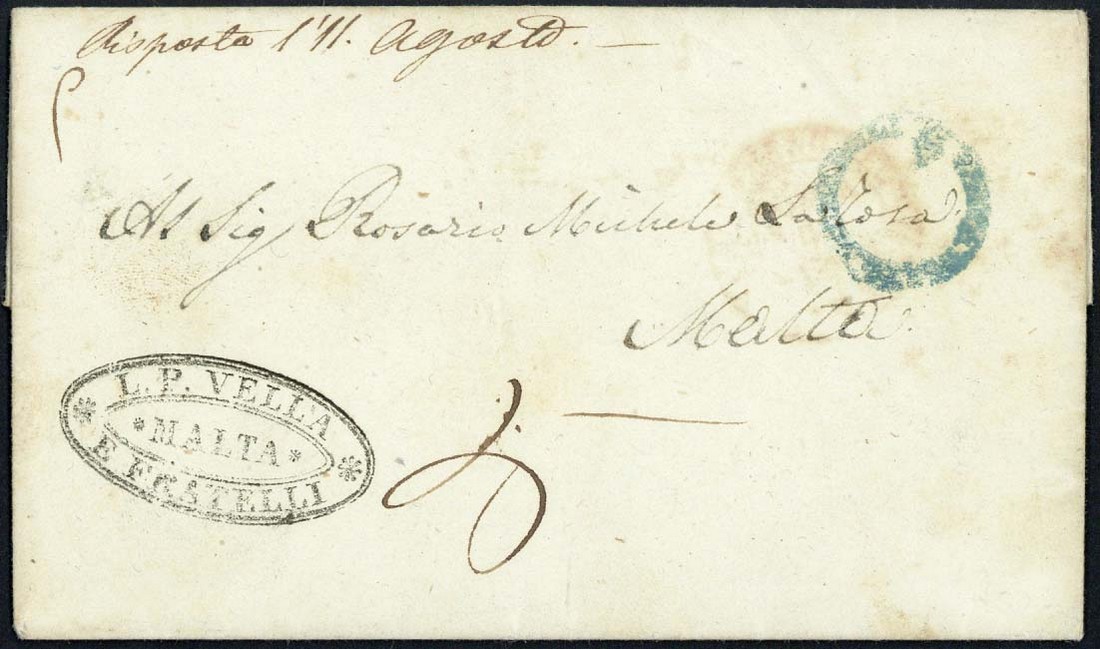 Risposta l'11. Agosto. —
Al Sig Rosario Michele LaRosa
Malta.
L. P. VELLA
* MALTA *
E FRATELLI